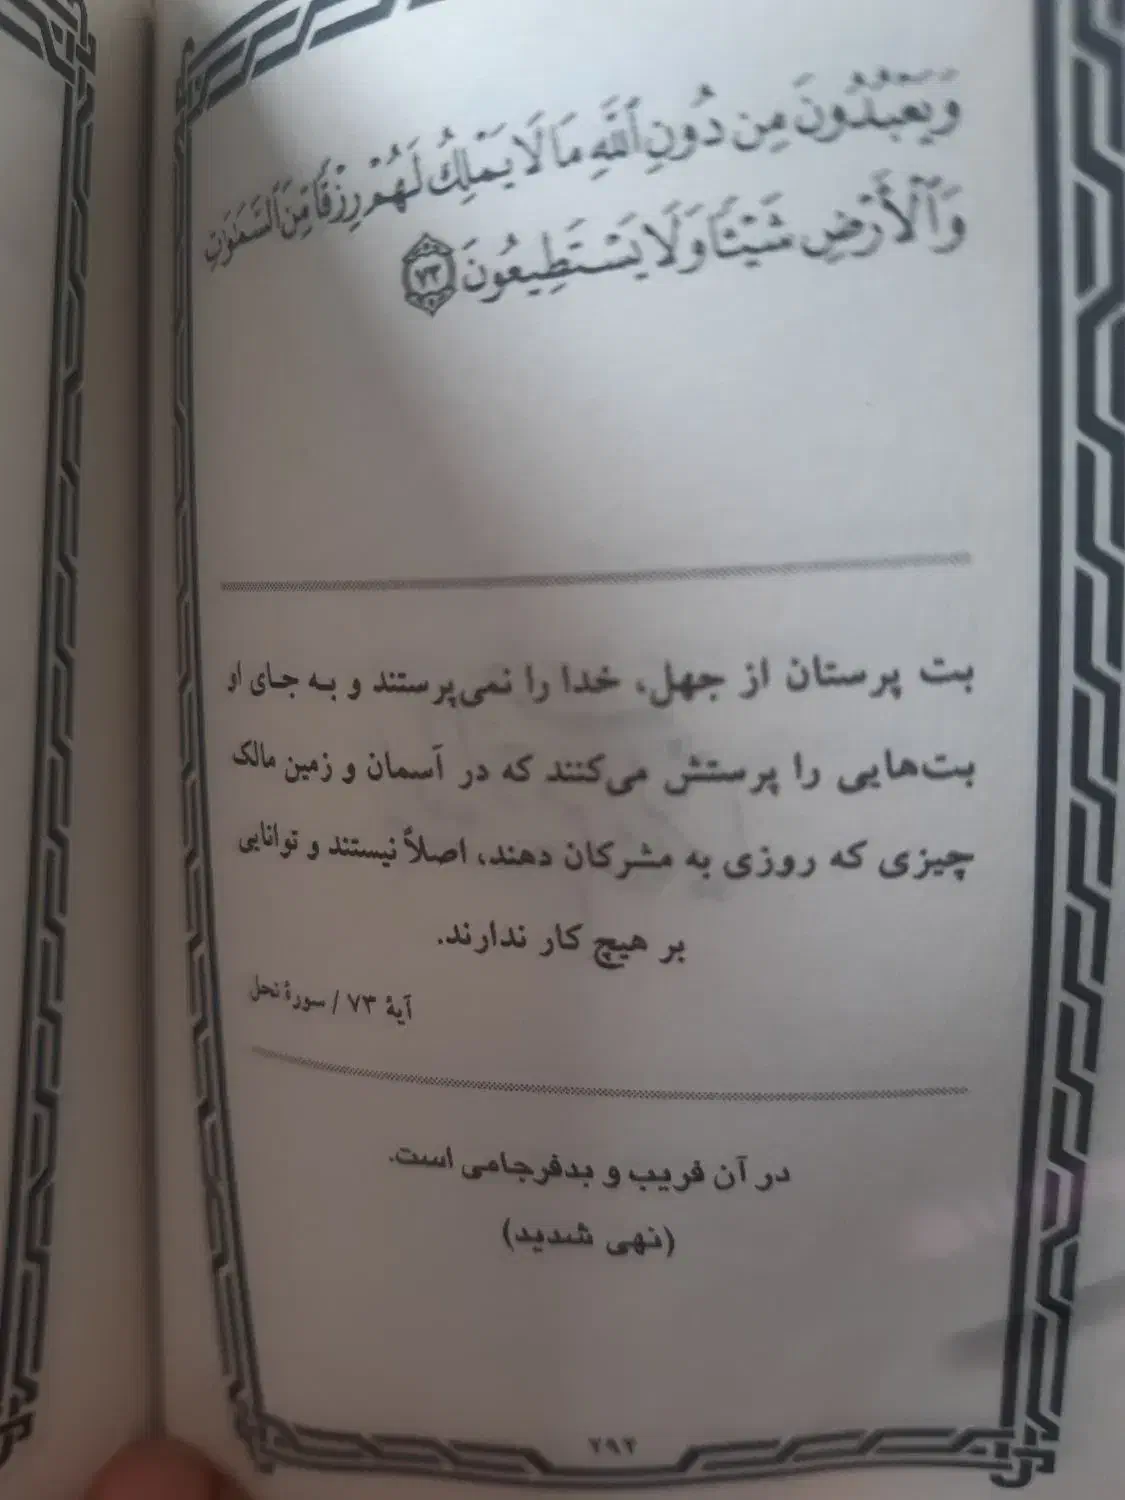 وَيَعْبُدُونَ مِن دُونِ ٱللَّهِ مَا لَا يَمْلِكُ لَهُمْ رِزْقًا مِّنَ ٱلسَّمَٰوَٰتِ
وَٱلْأَرْضِ شَيْـًٔا وَلَا يَسْتَطِيعُونَ ٧٣
بت پرستان از جهل، خدا را نمی‌پرستند و به جای او
بت‌هایی را پرستش می‌کنند که در آسمان و زمین مالک
چیزی که روزی به مشرکان دهند، اصلاً نیستند و توانایی
بر هیچ کار ندارند.
آیهٔ ۷۳ / سورهٔ نحل
در آن فریب و بدفرجامی است.
(نهی شدید)